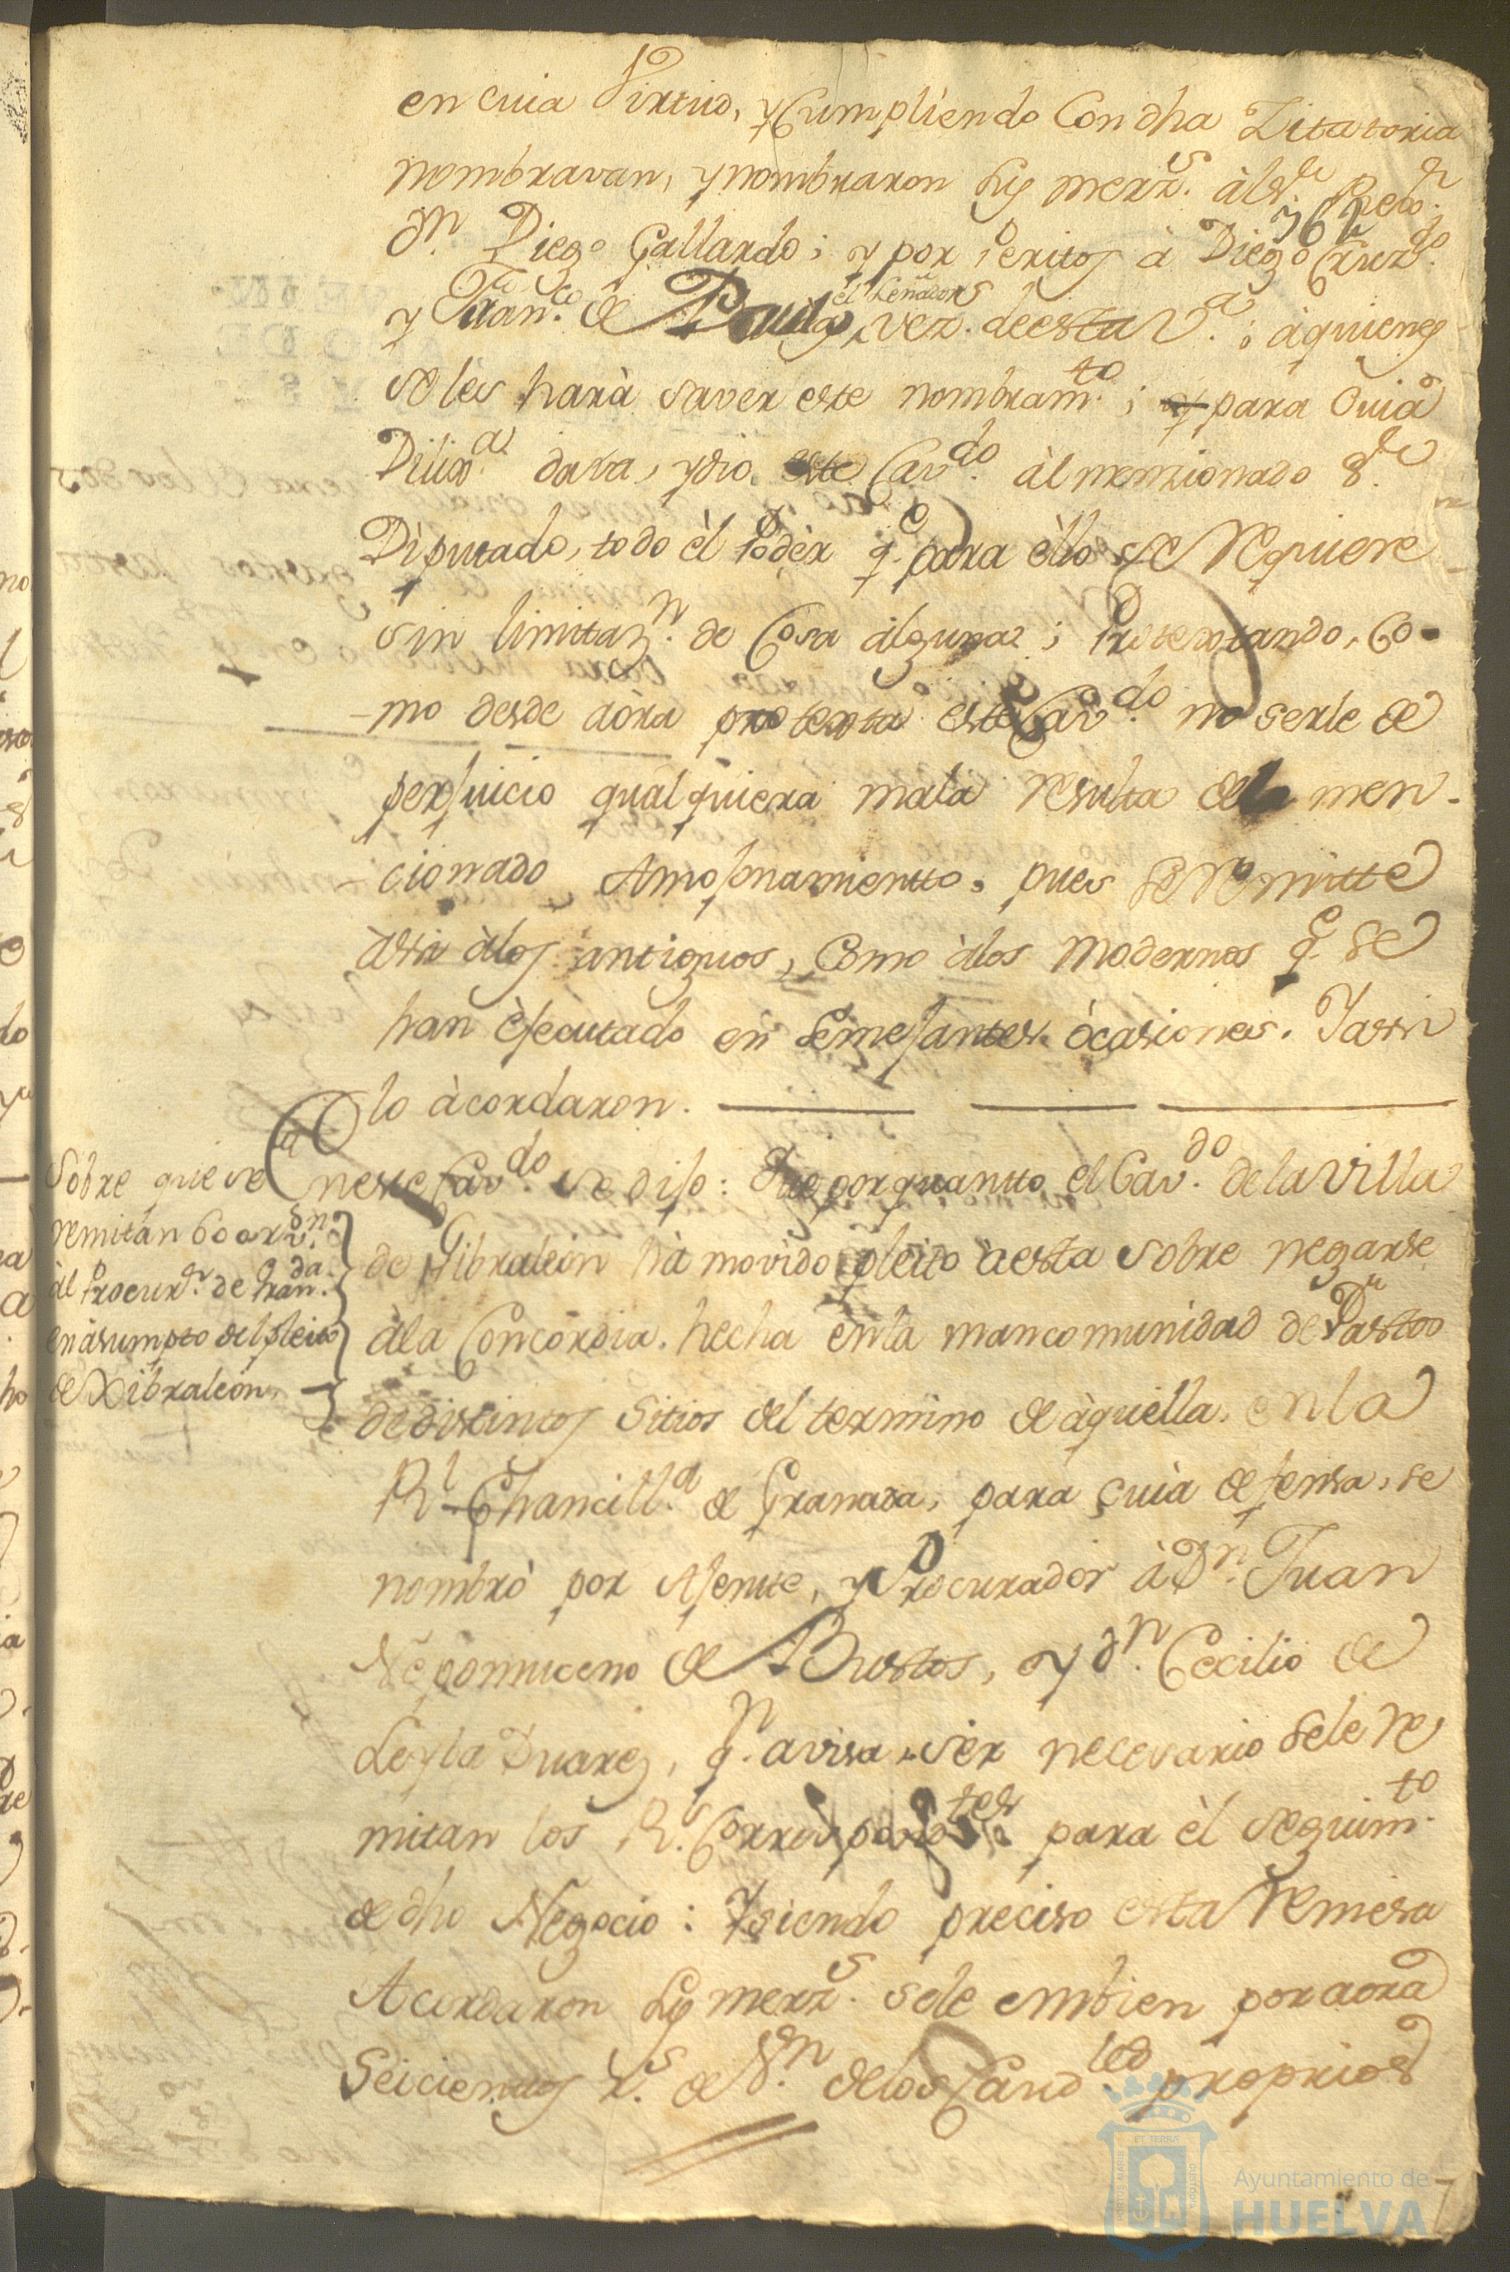 en cuia Virtud, y Cumpliendo Con dha Zitatoria
nombravan, y nombraron sus merzs. àl sr.
362
Dn. Diego Gallardo; y por Peritos à Diego Cruzdo.
y Franco. de Paula, el Leñador vezs. de esta Va.; à quienes
se les harà saver este nombramto.; para Cuia
Dilixa. dava, y dio este Cavdo. àl menzionado Sr.
Diputado, todo èl Podèr qe. para èllo se Requiere
sin limitazn. de Cosa alguna; Protextando, Co-
-mo desde aòra protexta este Cavdo. no serle de
perjuicio qualquiera mala resulta del men-
-cionado Amojonamiento, pues se Remitte
àssi àlos antiguos, Como àlos Modernos qe. se
han èjecutado en Semejantes òcasiones. Yassi
lo àcordaron.
Sobre que se
remitan 600 rs. vn.
àl Procurr. de Granda.
en àsumpto del Pleito
de Xibraleon
En este Cavdo. se dijo: Que por quantto el Cavdo. de la Villa
de Gibraleòn hà movido pleito à esta sobre negarse
àla Concordia hecha en la mancomunidad de Pastos
de distintos Sitios del termino de àquella, en la
Rl. Chancilla. de Granada, para cuia defensa, se
nombrò por Ajente, y Procurador à Dn. Juan
Nepomuceno de Bustos, y Dn. Cecilio de
Leyla Duarez, qn. avisa ser necesario se le re
mitan los Rs. Correspondtes para èl seguimto.
de dho Negocio: Y siendo preciso esta Remesa
Acordaron sus merzs. se le embien por aora
Seicientos Rs. de Vn. de los Caudles proprios
Ayuntamiento de
HUELVA